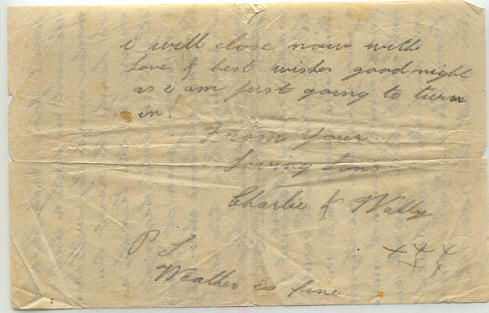 i will close now with
love & best wishes goodnight
as i am just going to turn
in
From Your
Loving Sons
Charlie & Wally
x x x
x x
P S
Weather is fine